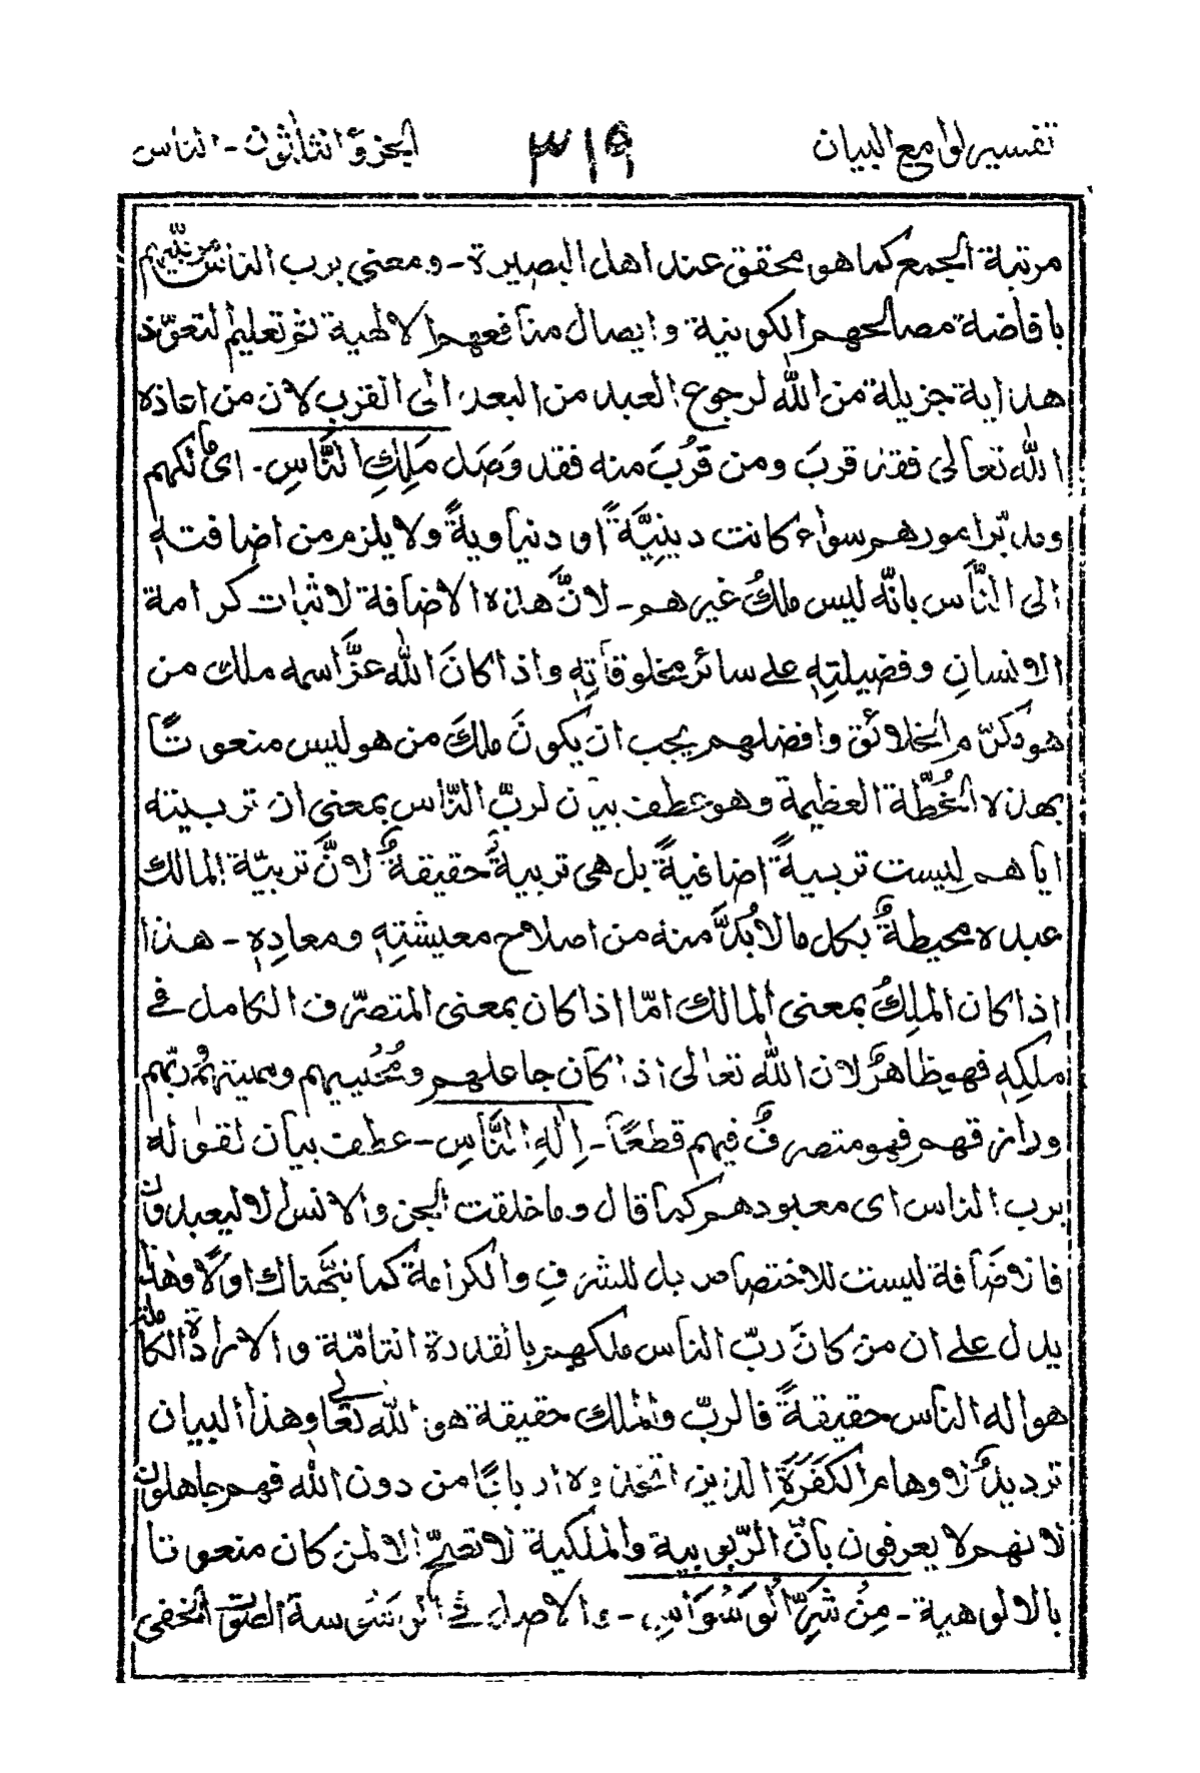 تفسير لوامع البيان ٣١٩ الجزؤ الثلاثون - الناس
مرتبة الجمع كما هو محقق عند اهل البصيرة - ومعنى برب الناس مربّيهم
بافاضة مصالحهم الكونية وايصال منافعهم الالهية ثم تعليم التعوّذ
هداية جزيلة من الله لرجوع العبد من البعد الى القرب لان من اعاذه
الله تعالى فقد قربَ ومن قَرُبَ منه فقد وَصَل مَلِكِ النَّاسِ - اى مالكهم
ومدبّر امورهم سواء كانت دينِيَّةً او دنياويةً ولا يلزم من اضافتهٖ
الى النَّاس بانّه ليس ملكُ غيرهم - لانَّ هذه الاضافة لاثبات كرامة
الانسانِ وفضيلتِهٖ على سائر مخلوقاتِهٖ واذا كانَ الله عزَّ اسمه ملك من
هو من الخلائق وافضلهم يجب ان يكونَ ملكَ من هو ليس منعوتًا
بهذه الخُطّة العظيمة وهو عطف بيان لربّ النّاس بمعنى ان تربيته
اياهم ليست تربيةً اضافيةً بل هى تربيةٌ حقيقةٌ لانَّ تربيّة المالك
عبده محيطةٌ بكل ما لابُدَّ منه من اصلاح معيشتِهٖ ومعادِهٖ - هذا
اذا كان الملِكُ بمعنى المالك امّا اذا كان بمعنى المتصرّف الكامل فى
ملكِهٖ فهو ظاهرٌ لان الله تعالى اذا كان جاعلهم ومُحْيِيهم ومميتهم وربّهم
ورازقهم فهو متصرفٌ فيهم قطعًا - اِلٰهِ النَّاسِ - عطف بيان لقوله
برب الناس اى معبودهم كما قال وما خلقت الجن والانس الا ليعبدون
فالاضَافة ليست للاختصاص بل للشرفِ والكرامة كما نبّهناك اولًا وهذا
يدل على ان من كانَ ربّ الناس ملكهم بالقدرة التامّة والارادة الكاملة
هو اله الناس حقيقةً فالربّ والملك حقيقة هو الله تعالى وهذا البيان
ترديدٌ لاوهام الكَفَرَةِ الذين اتخذوه اربابًا من دون الله فهم جاهلون
لانهم لا يعرفون بأنّ الرّبوبية والملكية لا تصحّ الا لمن كان منعوتا
بالالوهية - مِنْ شَرِّ الْوَسْوَاسِ - والاصل فى الوَسْوسة الصّوت الخفى